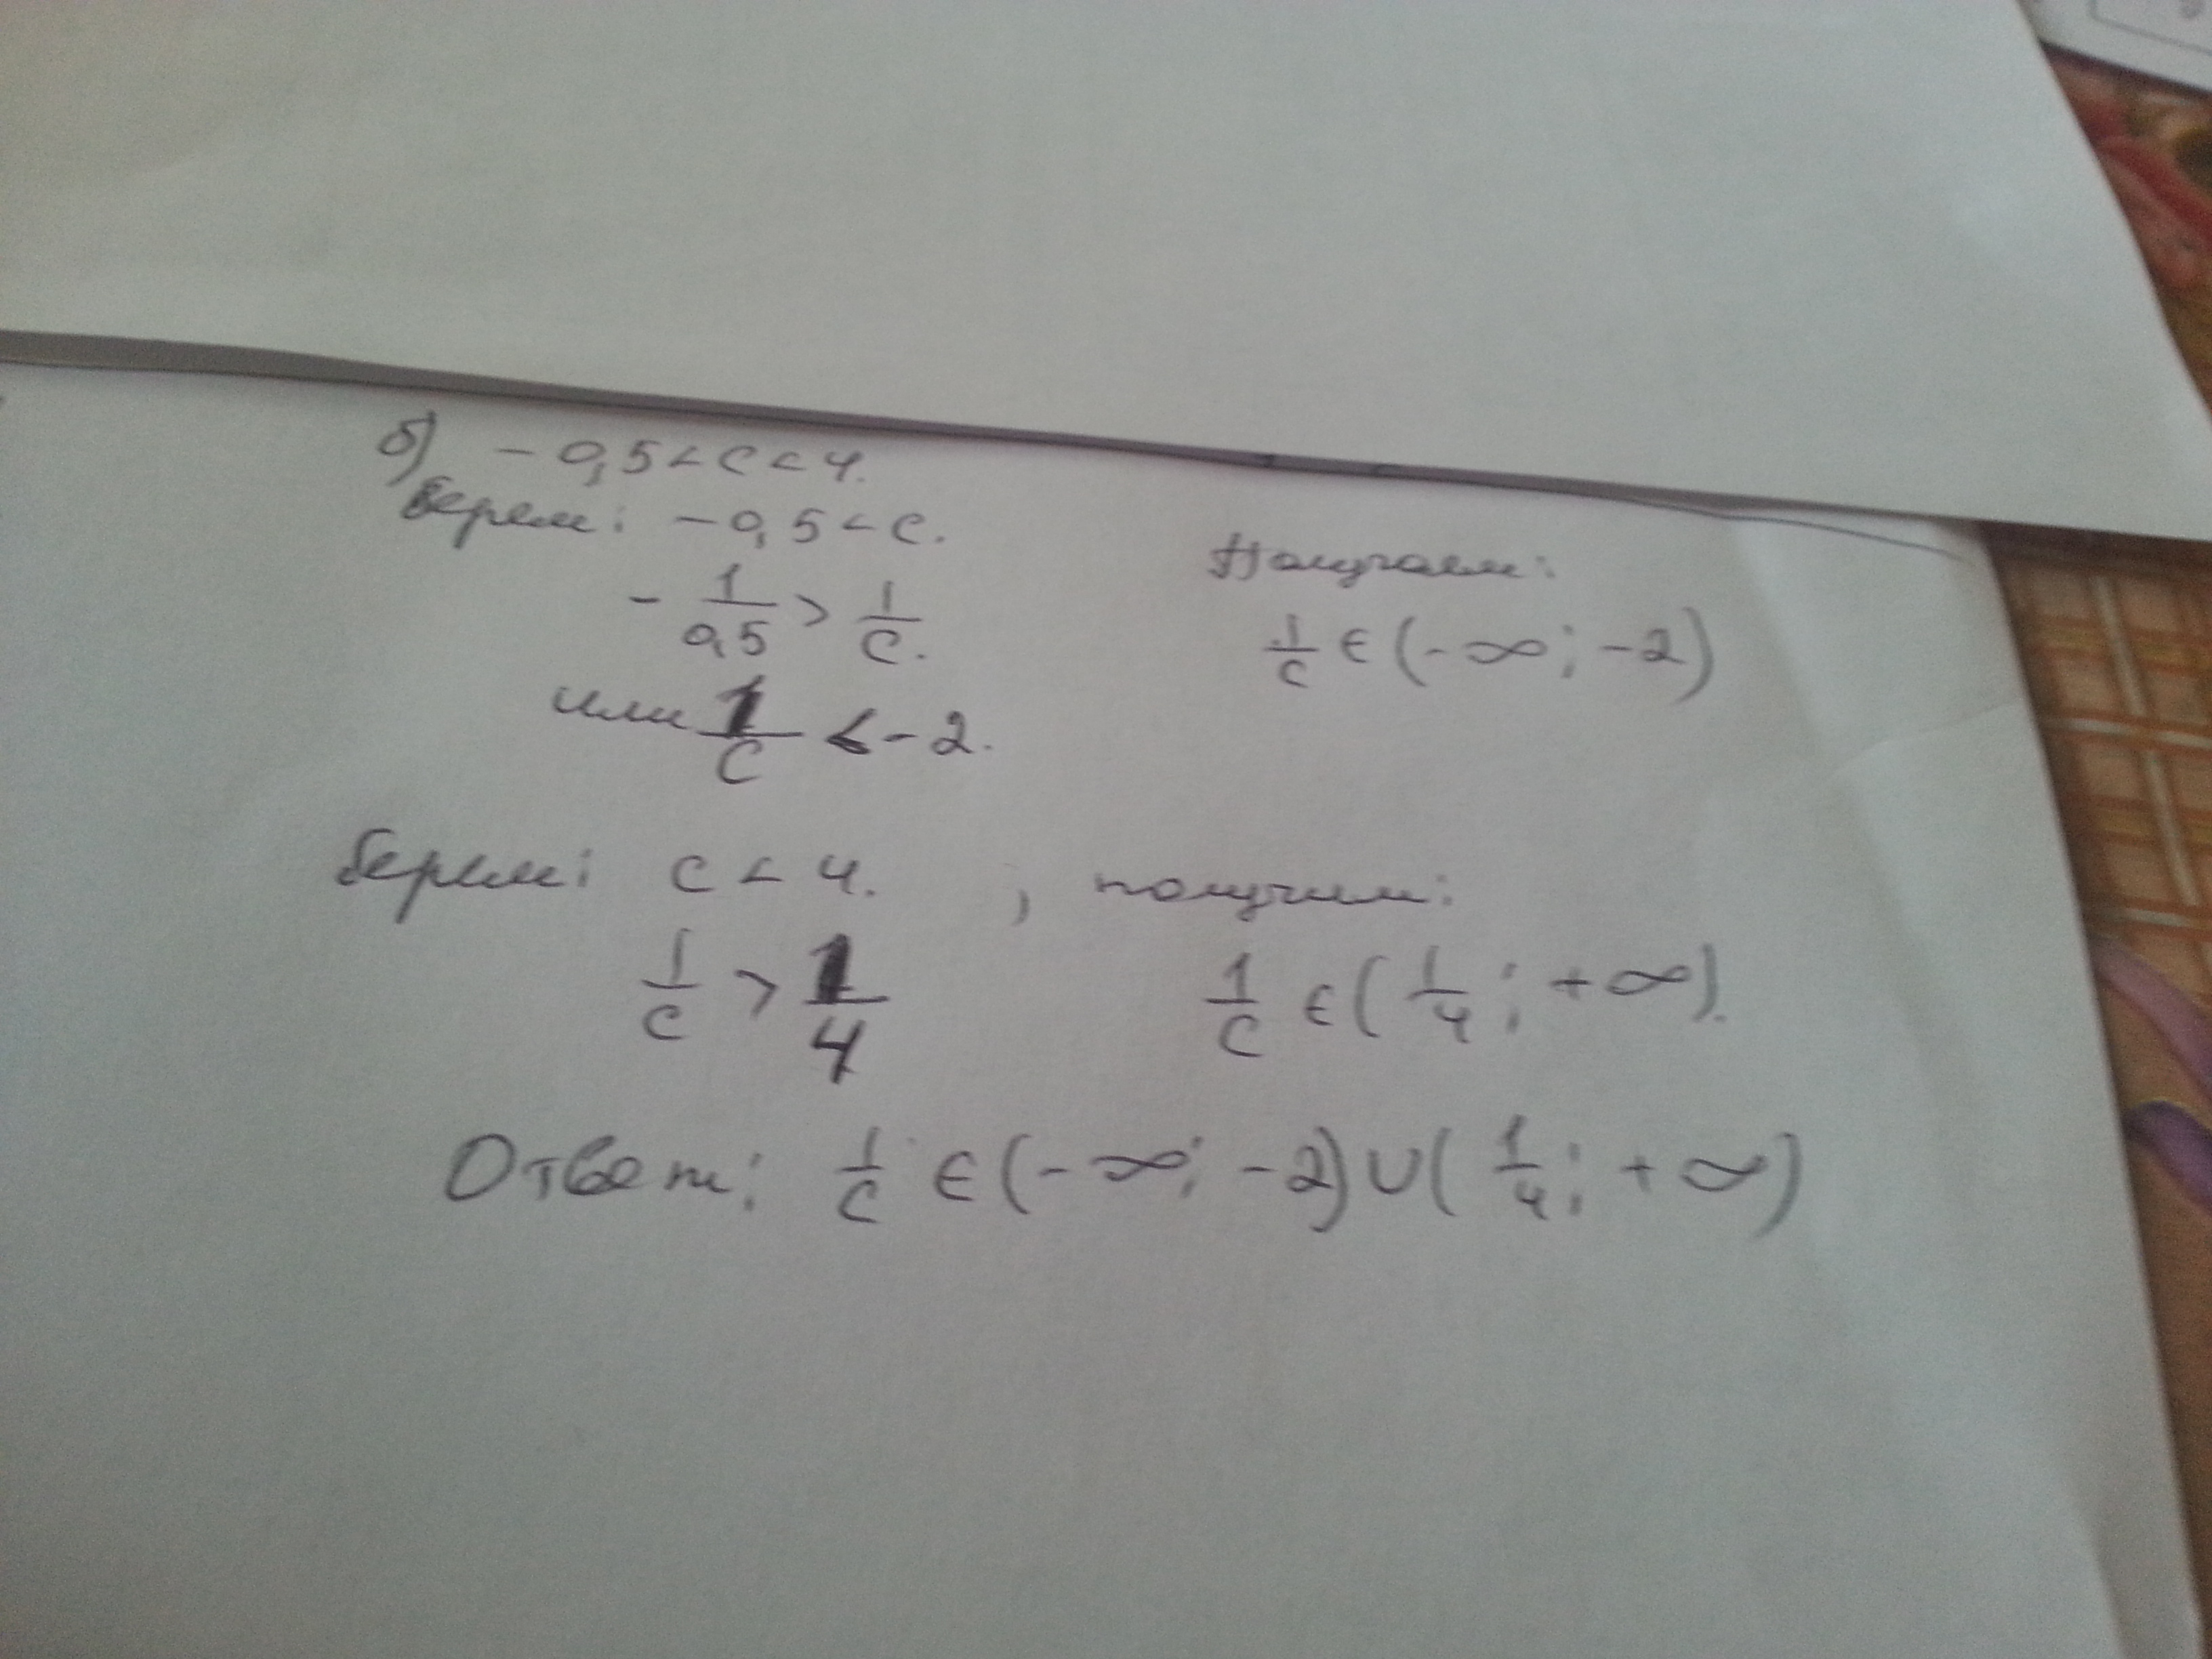 б) -0,5 < c < 4.
Берем: -0,5 < c.
- 1/0,5 > 1/c.
или 1/c < -2.
Получаем:
1/c ∈ (-∞; -2)
Берем: c < 4. , получим:
1/c > 1/4
1/c ∈ (1/4; +∞).
Ответ: 1/c ∈ (-∞; -2) ∪ (1/4; +∞)